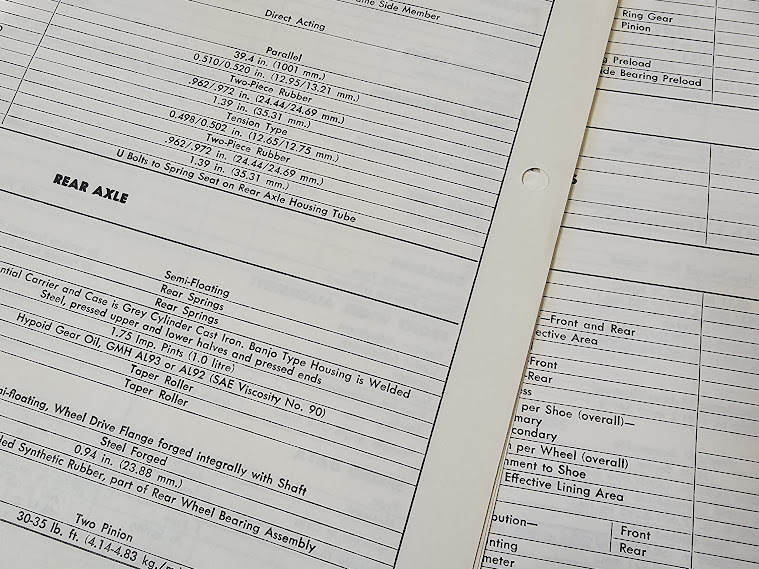 Side Member
Direct Acting
Parallel
39.4 in. (1001 mm.)
0.510/0.520 in. (12.95/13.21 mm.)
Two-Piece Rubber
.962/.972 in. (24.44/24.69 mm.)
1.39 in. (35.31 mm.)
Tension Type
0.498/0.502 in. (12.65/12.75 mm.)
Two-Piece Rubber
.962/.972 in. (24.44/24.69 mm.)
1.39 in. (35.31 mm.)
U Bolts to Spring Seat on Rear Axle Housing Tube
REAR AXLE
Semi-Floating
Rear Springs
Rear Springs
ntial Carrier and Case is Grey Cylinder Cast Iron. Banjo Type Housing is Welded
Steel, pressed upper and lower halves and pressed ends
1.75 Imp. Pints (1.0 litre)
Hypoid Gear Oil, GMH AL93 or AL92 (SAE Viscosity No. 90)
Taper Roller
Taper Roller
mi-floating, Wheel Drive Flange forged integrally with Shaft
Steel Forged
0.94 in. (23.88 mm.)
led Synthetic Rubber, part of Rear Wheel Bearing Assembly
Two Pinion
30-35 lb. ft. (4.14-4.83 kg./
Ring Gear
Pinion
g Preload
de Bearing Preload
S
—Front and Rear
ective Area
Front
Rear
ess
per Shoe (overall)—
mary
condary
per Wheel (overall)
nment to Shoe
Effective Lining Area
bution—
Front
Rear
nting
meter